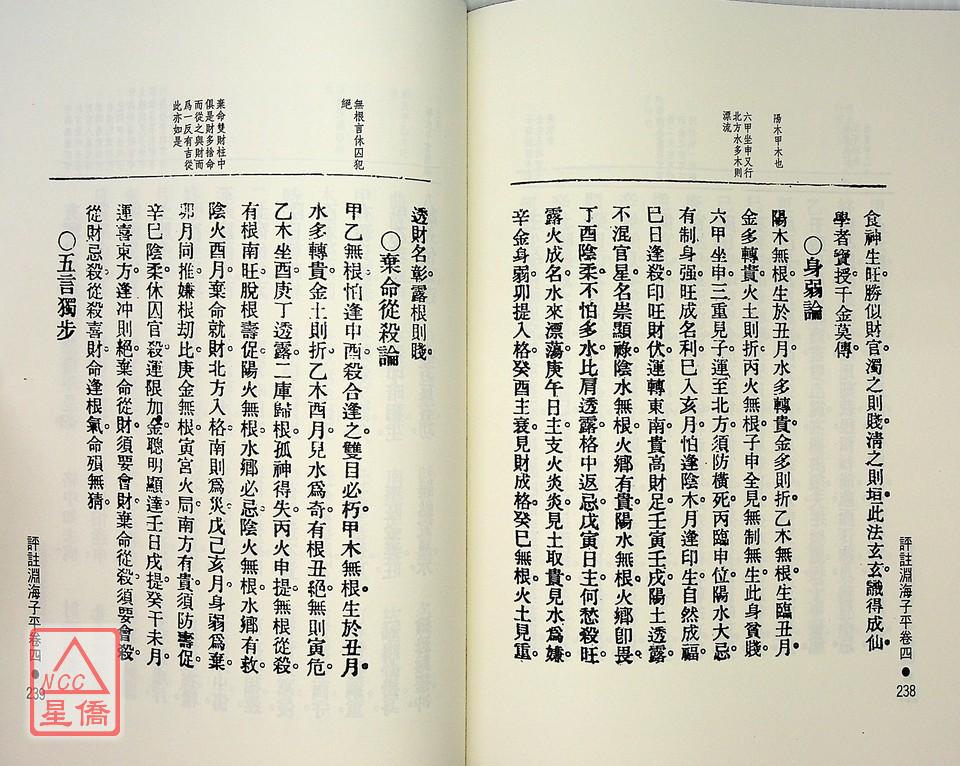 食神生旺勝似財官濁之則賤清之則垣此法玄玄識得成仙
學者寶授千金莫傳
○身弱論
陽木甲木也
陽木無根生於丑月水多轉貴金多則折乙木無根生臨丑月
金多轉貴火土則折丙火無根子申全見無制無生此身貧賤
六甲坐申又行
北方水多木則
漂流
六甲坐申三重見子運至北方須防橫死丙臨申位陽水大忌
有制身强旺成名利巳入亥月怕逢陰木月逢印生自然成福
巳日逢殺印旺財伏運轉東南貴高財足壬寅壬戌陽土透露
不混官星名崇顯祿陰水無根火鄉有貴陽水無根火鄉卽畏
丁酉陰柔不怕多水比肩透露格中返忌戊寅日主何愁殺旺
露火成名水來漂蕩庚午日主支火炎炎見土取貴見水爲嫌
辛金身弱卯提入格癸酉主衰見財成格癸巳無根火土見重
評註淵海子平卷四●
238
透財名彰露根則賤
○棄命從殺論
無根言休囚犯
絕
甲乙無根怕逢中酉殺合逢之雙目必朽甲木無根生於丑月
水多轉貴金土則折乙木酉月見水爲奇有根丑絕無則寅危
乙木坐酉庚丁透露二庫歸根孤神得失丙火申提無根從殺
有根南旺脫根壽促陽火無根水鄉必忌陰火無根水鄉有救
棄命雙財柱中
俱是財多捨命
而從之與財而
爲一反有吉從
此亦如是
陰火酉月棄命就財北方入格南則爲災戊己亥月身弱爲棄
卯月同推嫌根刼比庚金無根寅宮火局南方有貴須防壽促
辛巳陰柔休囚官殺運限加金聰明顯達壬日戌提癸干未月
運喜東方逢冲則絕棄命從財須要會財棄命從殺須要會殺
從財忌殺從殺喜財命逢根氣命殞無猜
○五言獨步
評註淵海子平卷四●
239
NCC
星僑